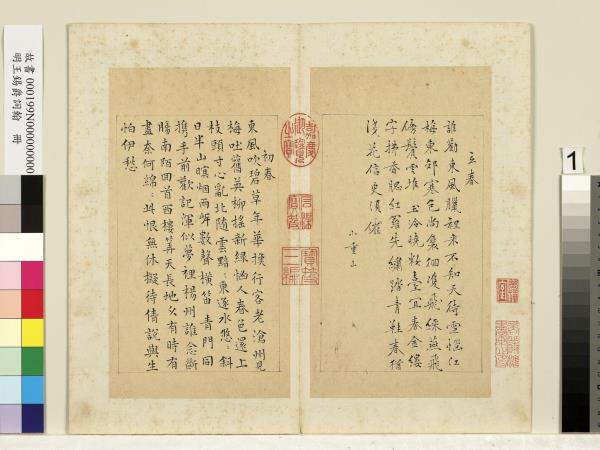 立春
誰勸東風臘裡來不知天待雪惱江
梅東郊寒色尚裴徊雙飛綵燕飛
傍鬢雲堆 玉冷曉粧臺宜春金縷
字拂香腮紅羅先繡踏青鞋春猶
淺花信更須催
小重山
初春
東風吹碧草年華換行客老滄州見
梅吐舊英柳搖新綠惱人春色還上
枝頭寸心亂北隨雲黯〻東逐水悠〻斜
日半山暝烟兩岸數聲橫笛 青門同
攜手前歡記渾似夢裡楊州誰念斷
腸南陌回首西樓算天長地久有時有
盡奈何綿〻此恨無休擬待倩說與生
怕伊愁
嘉慶御覽之寶
石渠寶笈
寶笈三編
故書 000199N000000000
明王錫爵詞翰 冊
1